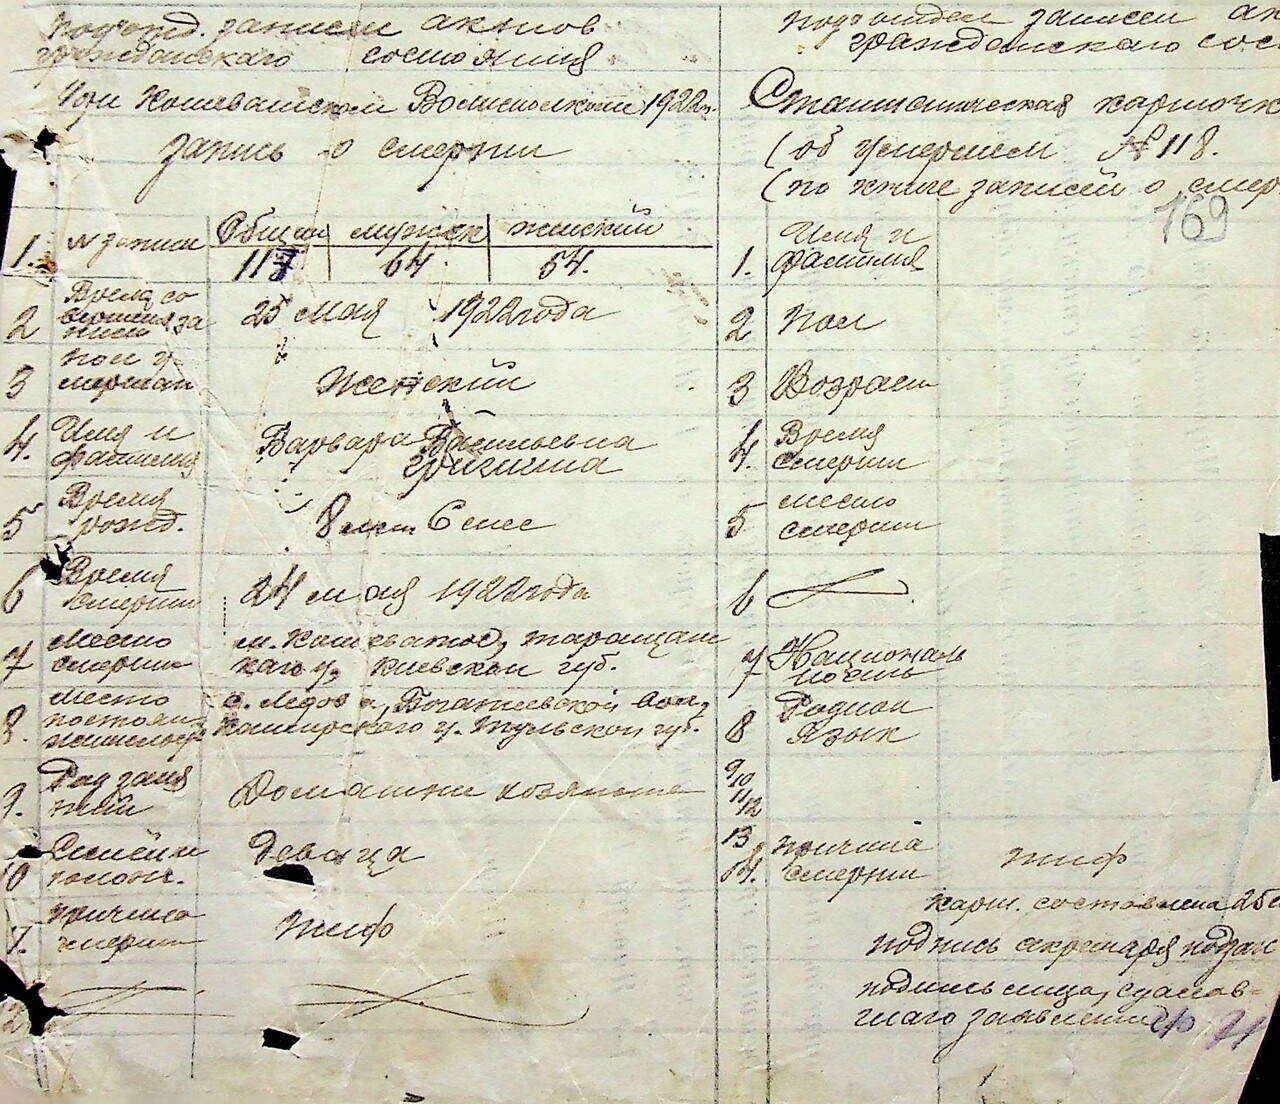 подотд. записей актов
гражданскаго состояния
при Кошеватском Волисполкоме 1922 г.
запись о смерти
1. № записи Общий мужск женский
117 64 54.
2 Время со
вершения за
писи 25 мая 1922 года
3 пол у-
мершаго Женский
4. Имя и
фамилия Варвара Васильевна
5 Время
рожд. 8 лет 6 мес
6 Время
смерти 24 мая 1922 года
7 Место
смерти м. Кошеватое, таращан
каго у, киевской губ.
8. Место
постоян.
жительст с. Медов а, Богатиевской вол,
Каширского у. Тульской губ.
9. Род заня
тий Домашнее хозяйство
10 Семейн
полож. девица
Причина
смерти тиф
12
подотдел записей ак
гражданскаго сос
Статистическая карточк
(об умершем № 118.
(по книге записей о смер
169
1. Имя и
фамилия
2 Пол
3 Возраст
4. Время
смерти
5 место
смерти
6
7 Националь
ность
8 Родной
язык
9
10
11
12
13
14. причина
смерти тиф
карт. составлена 25
подпись секретаря подот
подпись лица, сделав-
шаго заявление